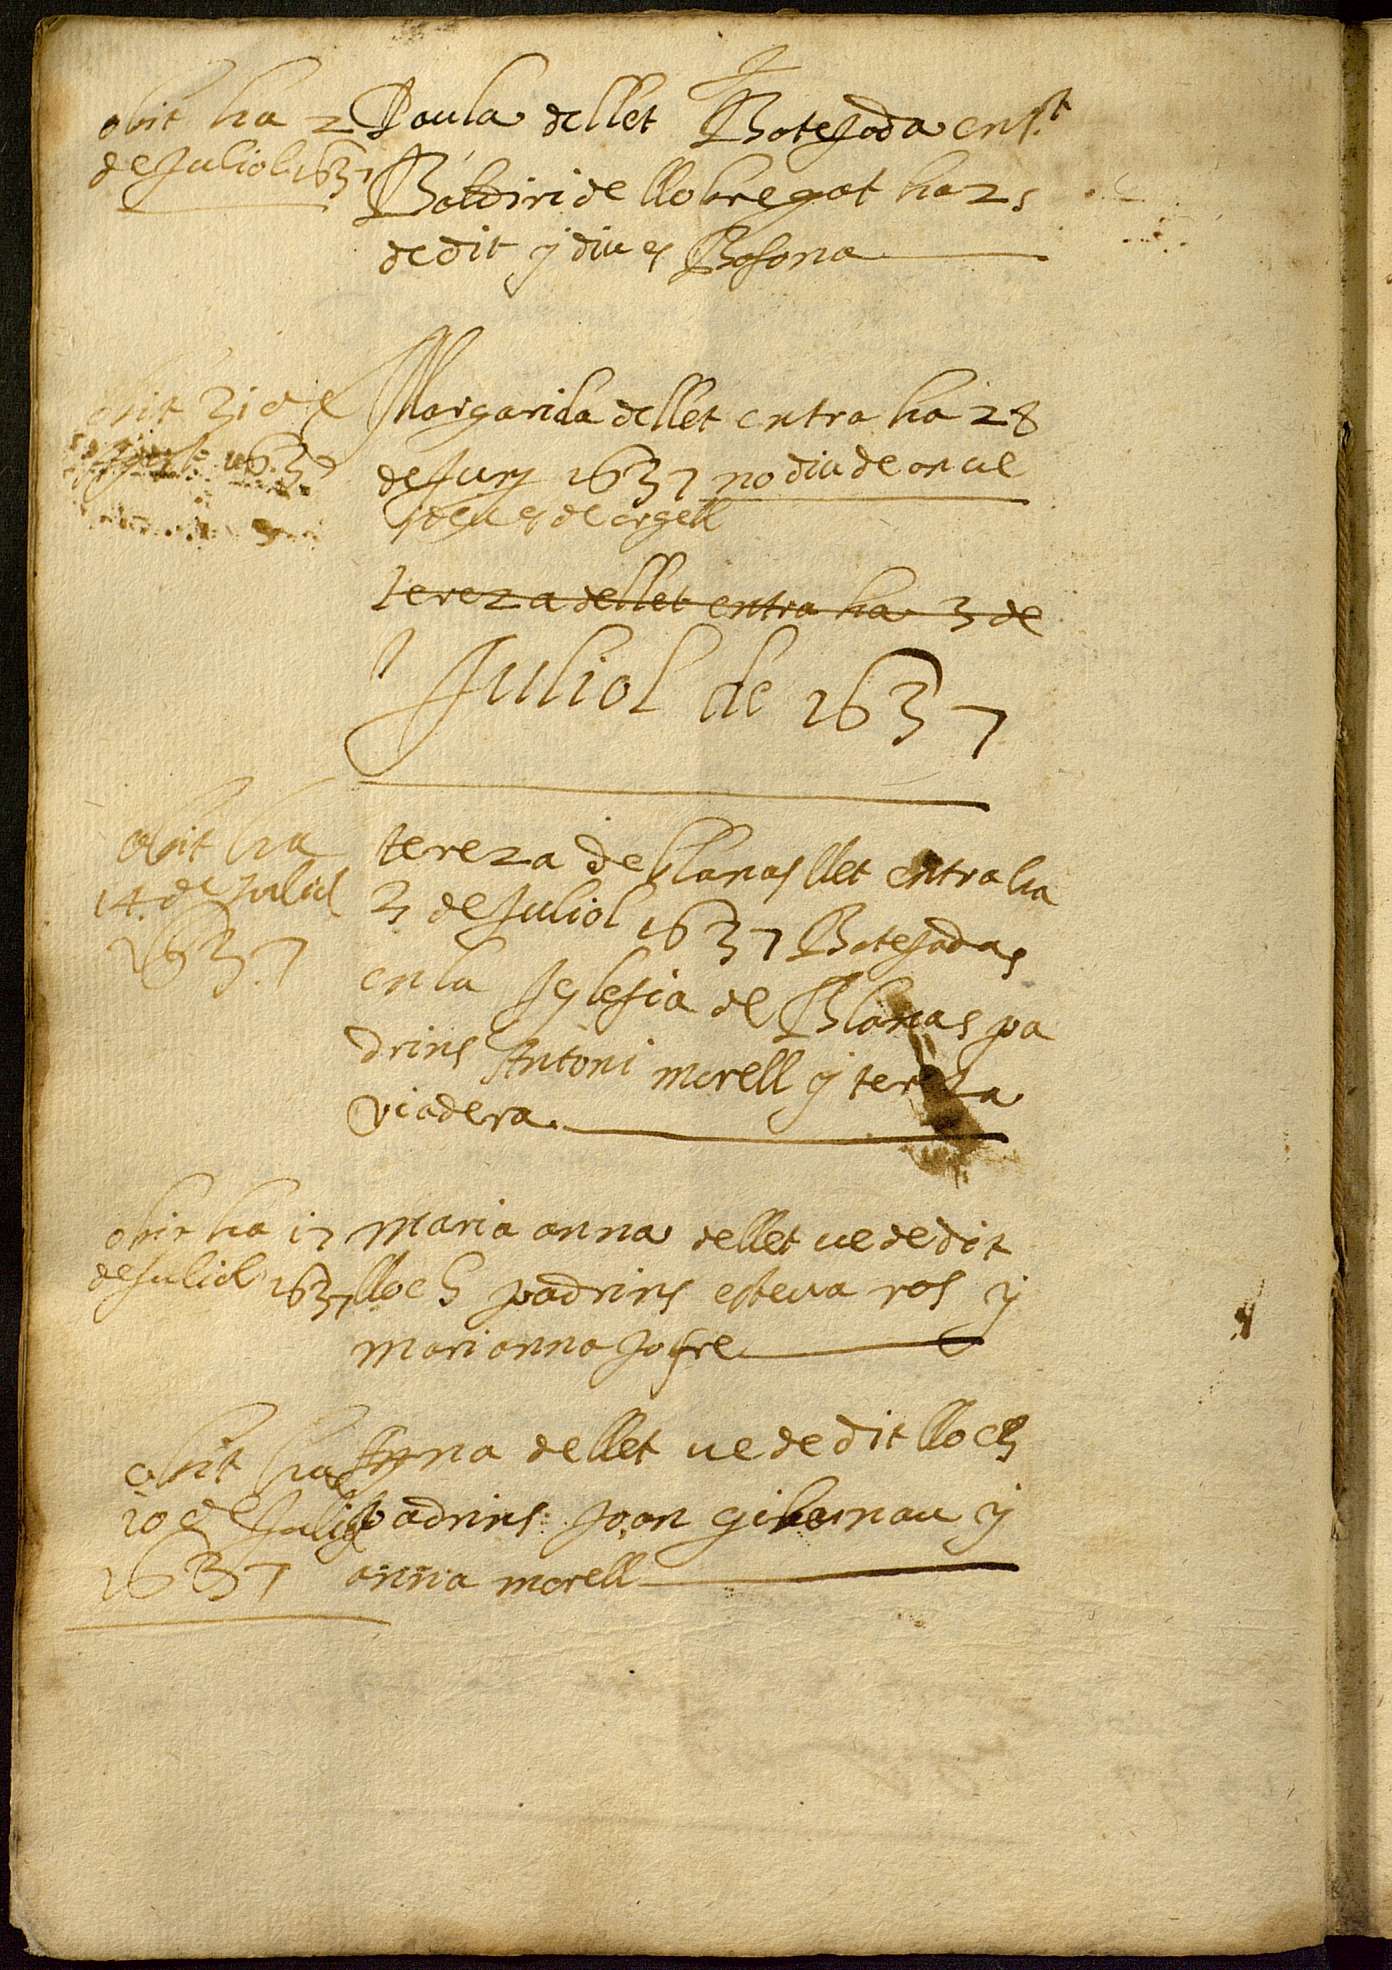 obit ha 2
de Juliol 1637
Paula de llet Batejada en S.t
Baldiri de llobregat ha 25
de dit y diu es Bosona
obit 31 de
1637
Margarida de llet entra ha 28
de Juny 1637 no diu de on ve
de orgell
tereza de llet entra ha 3 de
Juliol de 1637
obit ha
14 de Juliol
1637
tereza de blanas llet entra ha
3 de Juliol 1637 Batejadas
en la Iglesia de Blanas pa
drins Antoni morell y tereza
viadera
obit ha 17
de Juliol 1637
Maria anna de llet ve de dit
lloch padrins esteva ros y
mari anna Jofre
obit ha
10 de Juliol
1637
Anna de llet ve de dit lloch
padrins Joan gibernau y
anna morell